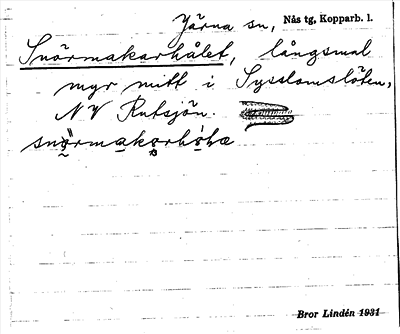 Järna sn, Nås tg, Kopparb. l.
Snörmakarhålet, långsmal
myr mitt i Sysslomslöten,
NV Rutsjön.
Bror Lindén 1931